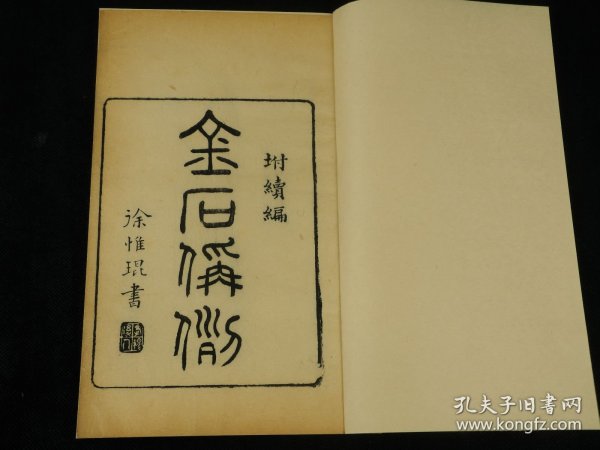 坿續編
金石偁例
徐惟琨書
孔夫子旧書网
www.kongfz.com